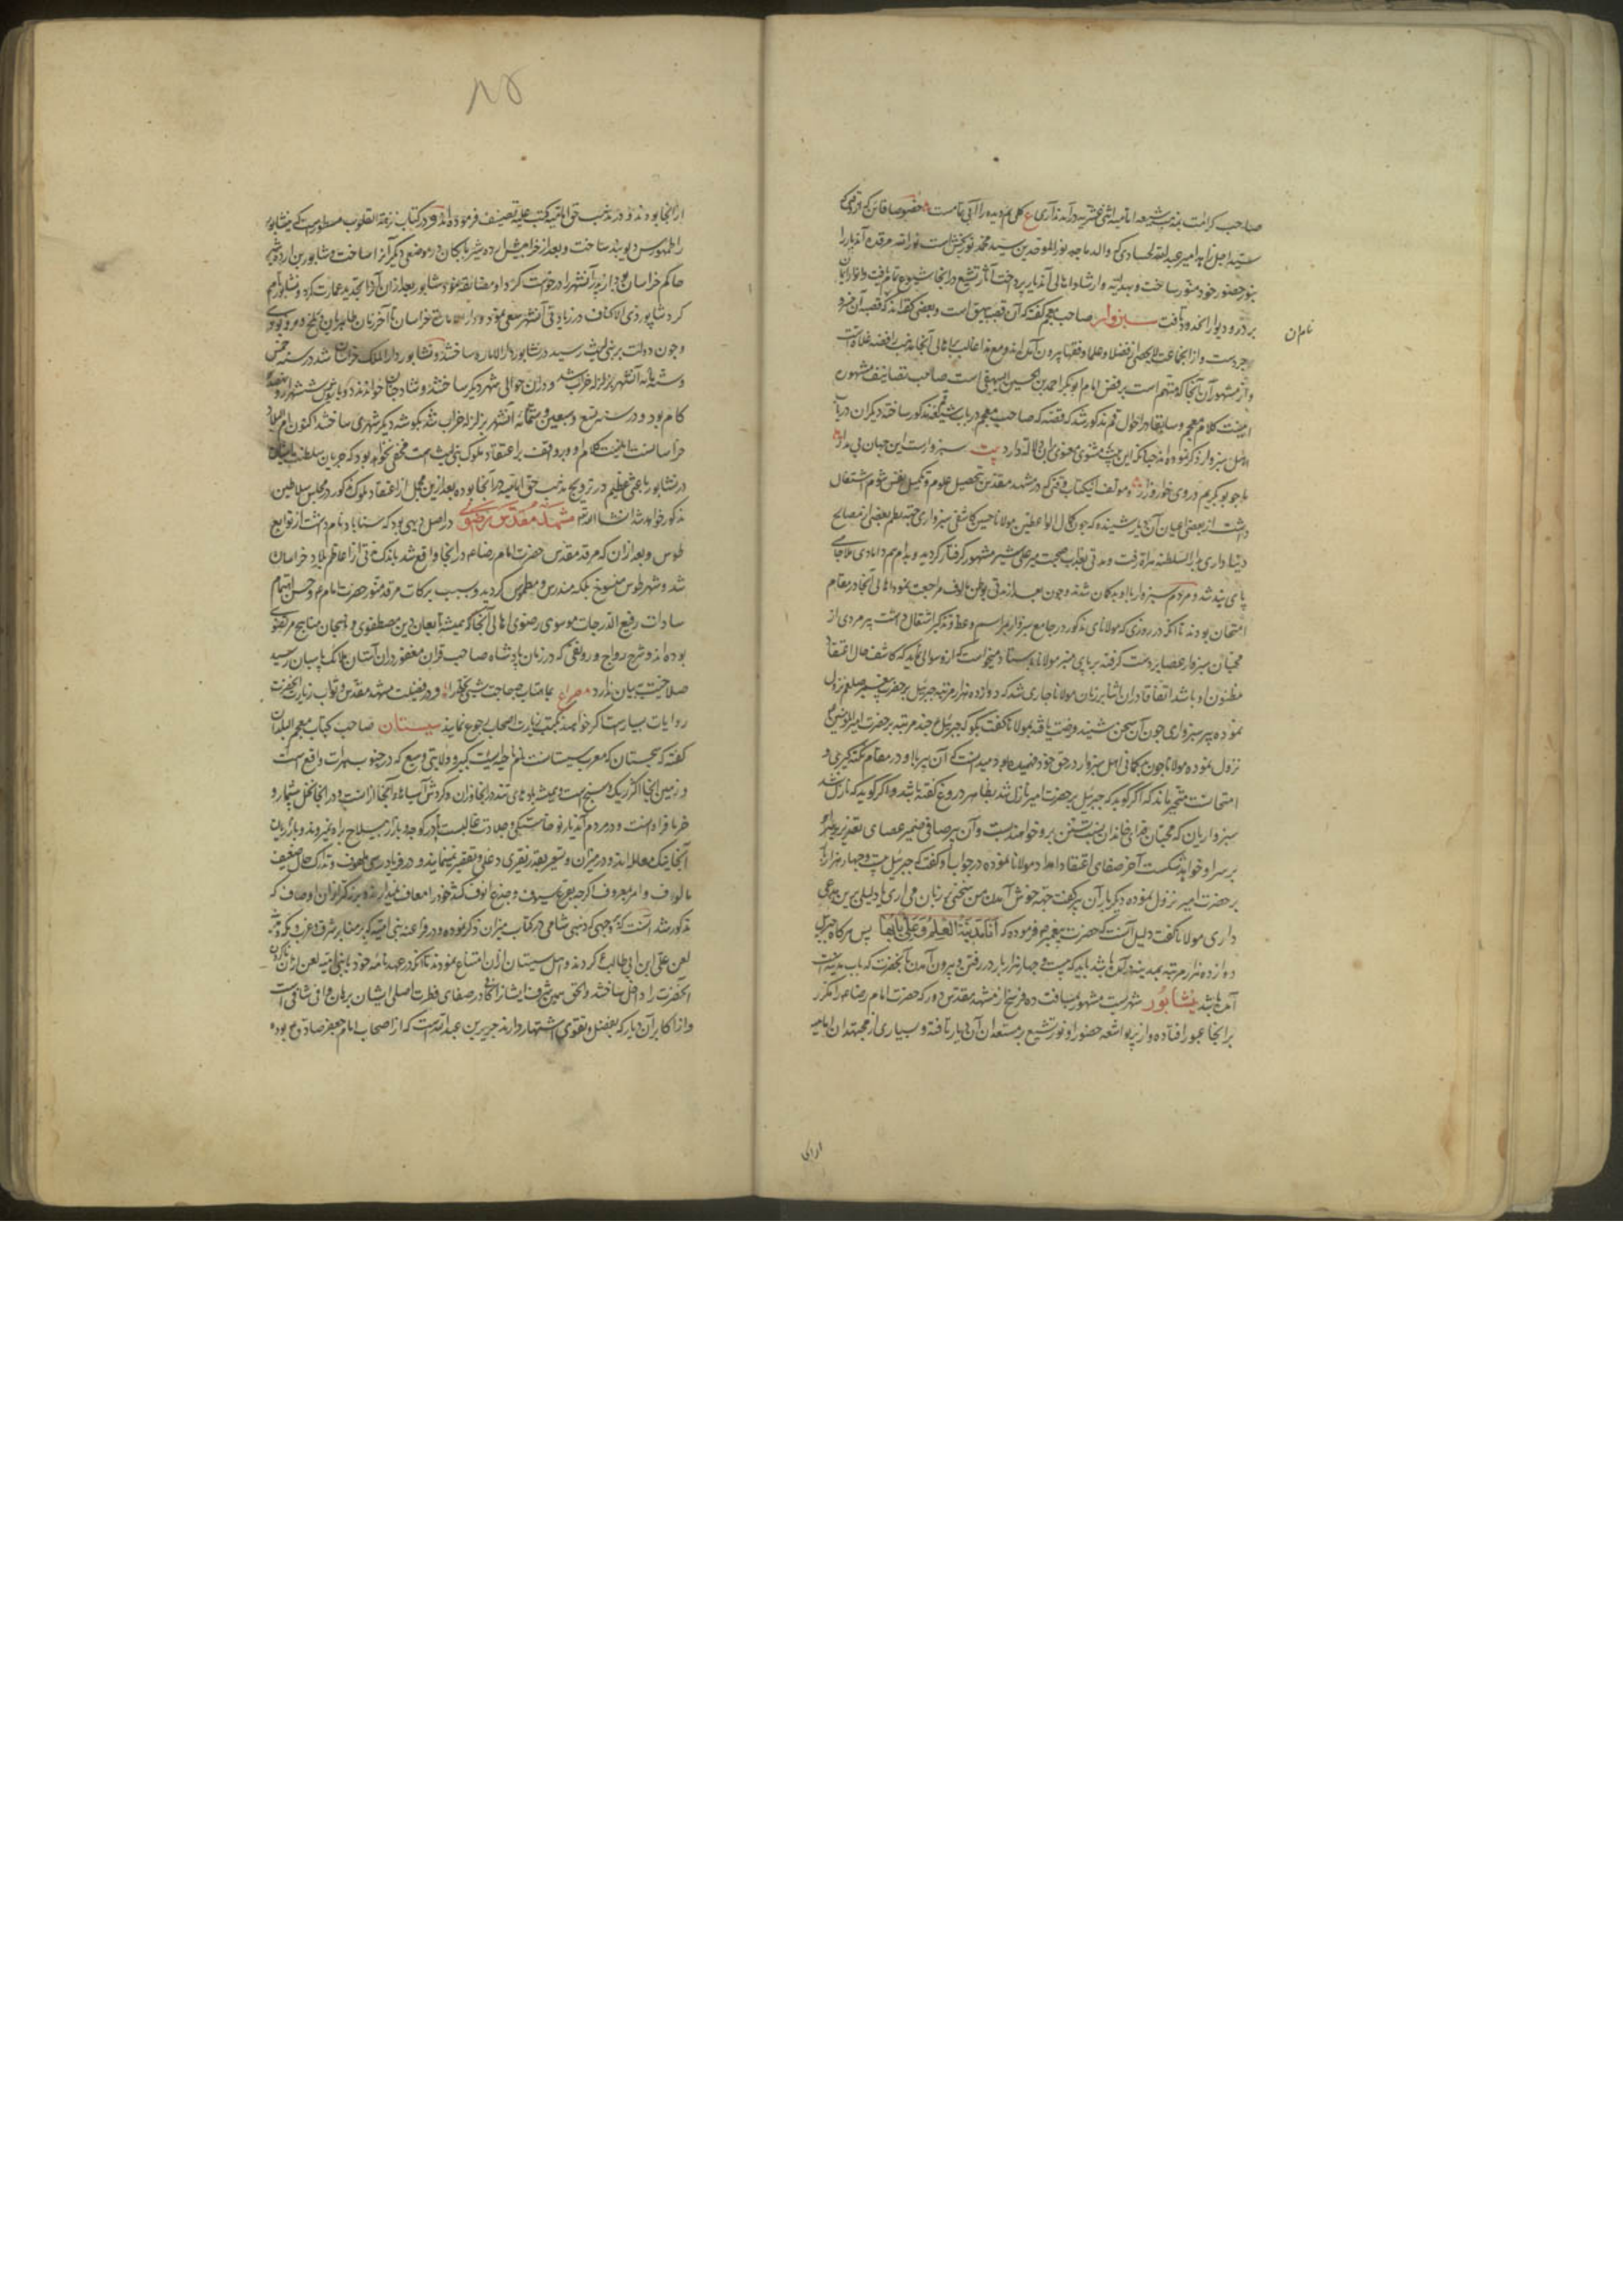 صاحب کرامت بمذهب شیعه امامیه اثنی عشریه درآمدند آری ع کلی نم دیده را آبی تمامست خصوصا قاین که وقتی که
سید اجل زاهد امیر عبدالله لحساوی که والد ماجد نورالموحدین سید محمد نوربخش است نورالله مرقده آندیار را
بنور حضور خود منور ساخت و بهدایت و ارشاد اهالی آندیار پرداخت آثار تشیع در آنجا شیوع تمام یافت و انوار ایمان
بر در و دیوار آنحدود تافت سبزوار صاحب معجم گفته که آن قصبه بیهق است و بعضی گفته‌اند که قصبه آن خسرو
نام آن
جردست و از آنجا جماعت لایحصی از فضلا و علما و فقها بیرون آمده‌اند و مع هذا غالب بر اهالی آنجا مذهب رافضه غلاة است
و از مشهوران آنجا که متهم است برفض امام ابوبکر احمد بن الحسین البیهقی است صاحب تصانیف مشهوره
اینست کلام معجم و سابقا در احوال قم مذکور شد که قصه که صاحب معجم در باب شیعه قم مذکور ساخته دیگران در باب
اهل سبزوار ذکر نموده‌اند چنانکه این بیت مثنوی معنوی بران دلالت دارد بیت سبزوارست این جهان بی مدار
ما چو بوبکریم در وی خوار و زار و مولف این کتاب وقتی که در مشهد مقدس تحصیل علوم و تکمیل نفس شوم اشتغال
داشت از بعضی اعیان آن دیار شنیده که چون کمال الواعظین مولانا حسین کاشفی سبزواری جهة نظم بعضی از مصالح
دنیاداری بدار السلطنه هراة رفت و مدتی بعذاب صحبت میر علی شیر مشهور گرفتار گردید و بدام دامادی ملا جامی
پای بند شد و مردم سبزوار باو بد گمان شدند و چون بعد از مدتی بوطن مالوف مراجعت نمود اهالی آنجا در مقام
امتحان بودند تا آنکه در روزی که مولانای مذکور در جامع سبزوار بمراسم وعظ و تذکیر اشتغال داشت پیر مردی از
محبان سبزوار عصا بر دست گرفته بر پای منبر مولانا بایستاد و میخواست که ازو سوالی نماید که کاشف حال اعتقاد
مظنون او باشد اتفاقا دران اثنا بر زبان مولانا جاری شد که دوازده هزار مرتبه جبرئیل بر حضرت پیغمبر صلعم نزول
نموده پیر سبزواری چون آن سخن شنید فرصت یافته بمولانا گفت بگو که جبرئیل چند مرتبه بر حضرت امیرالمؤمنین
نزول نموده مولانا چون بدگمانی اهل سبزوار در حق خود فهمیده بود و میدانست که آن پیر با او در مقام نکته گیری و
امتحانست متحیر ماند که اگر گوید که جبرئیل بر حضرت امیر نازل شد بظاهر دروغ گفته باشد و اگر گوید که نازل نشد
سبزواریان که محبان خدای خاندانند بتشنیع برو خواهند نشست و آن پیر صافی ضمیر عصای تقدیر بر
بر سر او خواهد شکست آخر صفای اعتقاد امداد مولانا نموده در جواب او گفت که جبرئیل بیست و چهار هزار بار
بر حضرت امیر نزول نموده دیگر بار آن پیر گفت جهة خوش آمدن من سخنی بر زبان می‌آری یا دلیلی برین مدعی
داری مولانا گفت دلیل آنست که حضرت پیغمبر فرموده که اَنَا مَدینَةُ العِلْمِ وَ عَلیٌ بَابُهَا پس هرگاه جبرئیل
دوازده هزار مرتبه بمدینه در آمده باشد باید که بیست و چهار هزار بار در رفتن و بیرون آمدن بآنحضرت که باب مدینه است
آمده باشد نشابور شهریست مشهور بمسافت ده فرسخ از مشهد مقدس دور که حضرت امام رضا را گذر
بر آنجا عبور افتاده و از پرتو اشعه حضور او نور تشیع بر مستعدان آن دیار تافته و بسیاری از مجتهدان امامیه
ازان
۸۵
از آنجا بوده‌اند و در مذهب حق امامیه کتب علیه تصنیف فرموده‌اند و در کتاب نزهة القلوب مسطورست که نیشابور
را طهمورس دیوبند ساخت و بعد از خرابیش اردشیر بابکان در موضعی دیگر آنرا ساخت و شاپور بن اردشیر
حاکم خراسان بود از پدر آنشهر را درخواست کرد او مضایقه نمود شاپور بعد ازان آنرا تجدید عمارت کرد و نیشابور نام
کرد شاپور ذی الاکتاف در زیادتی آنشهر سعی نمود و دار الامارة خراسان تا آخر زمان طاهریان در بلخ و مرو بودی
و چون دولت ببنی لیث رسید در نشابور دار الاماره ساختند و نشابور دارالملک خراسان شد در سنه خمس
و ستمایه آنشهر بزلزله خراب شد و دران حوالی شهری دیگر ساختند و شادیاخ خواندند
کام بود و در سنه تسع و سبعین و ستمائه آنشهر بزلزله خراب شد بگوشه دیگر شهری ساختند اکنون ام البلاد
خراسانست اینست کلام او و بر واقف بر اعتقاد ملوک بنی لیث مخفی نخواهد بود که جریان سلطنت ایشان
در نشابور باعثی عظیم در ترویج مذهب حق امامیه در آنجا بوده بعد ازین مجمل از اعتقاد ملوک مذکور در مجلس سلاطین
مذکور خواهد شد انشاالله مشهد مقدس رضوی در اصل دیهی بود که سناباد نام داشت از توابع
طوس و بعد ازان که مرقد مقدس حضرت امام رضا در آنجا واقع شد باندک مدتی از اعاظم بلاد خراسان
شد و شهر طوس منسوخ بلکه مندرس و مطموس گردید و بسبب برکات مرقد منور حضرت امام و حسن اهتمام
سادات رفیع الدرجات موسوی رضوی اهالی آنجا همیشه تابعان دین مصطفوی و ناهجان مناهج مرتضوی
بوده‌اند و شرح رواج و رونقی که در زمان پادشاه صاحب قران مغفور دران آستان ملائک پاسبان رسید
صلاحیت بیان ندارد مصراع بماهتاب چه حاجت شب تجلی را و در فضیلت مشهد مقدس و ثواب زیارت آنحضرت
روایات بسیارست اگر خواهند بکتب زیارت اصحاب رجوع نمایند سیستان صاحب کتاب معجم البلدان
گفته که سجستان که معرب سیستانست نام ناحیه ایست کبیر و ولایتی وسیع که در جنوب هرات واقع است
و زمین آنجا اکثر ریک و سبخ است و همیشه بادهای تند در آنجا وزان و گردش آسیاهای آنجا ازانست و در آنجا نخل بیشمار و
خرما فراوانست و در مردم آندیار نوخاستگی و جلادت غالبست و در کوچه و بازار بی سلاح براه نمیروند و بازاریان
آنجا نیک معامله‌اند و در میزان و تسعیر بقدر نقیری دغلی و تقصیر نمینمایند و در فریاد رسی ملهوف و تدارک حال ضعیف
مالوف و امر بمعروف اگر چه بقرع سیوف و جدع انوف کشد خود را معاف نمیدارند و بزرگتر از ان اوصاف که
مذکور شد آنست که بر وجهی که ذهبی شامی در کتاب میزان ذکر نموده در زمان فراعنه بنی امیه که بر منابر شرق و غرب و مکه و مدینه
لعن علی ابن ابی طالب کردند و اهل سیستان از آن امتناع نمودند تا آنکه در عهدنامه خود با بنی امیه لعن ناکردن
آنحضرت را داخل ساختند و الحق همین شرف ایشان را کافی و در صفای فطرت اصلی ایشان برهان وافی شافی است
و از اکابر آن دیار که بفضل و تقوی اشتهار دارند جریر بن عبدالله است که از اصحاب امام جعفر صادق ع بوده